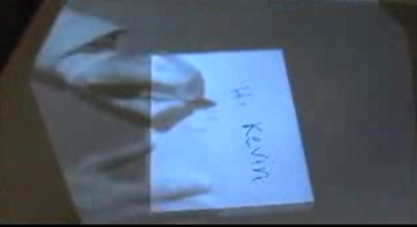 Hi Kevin